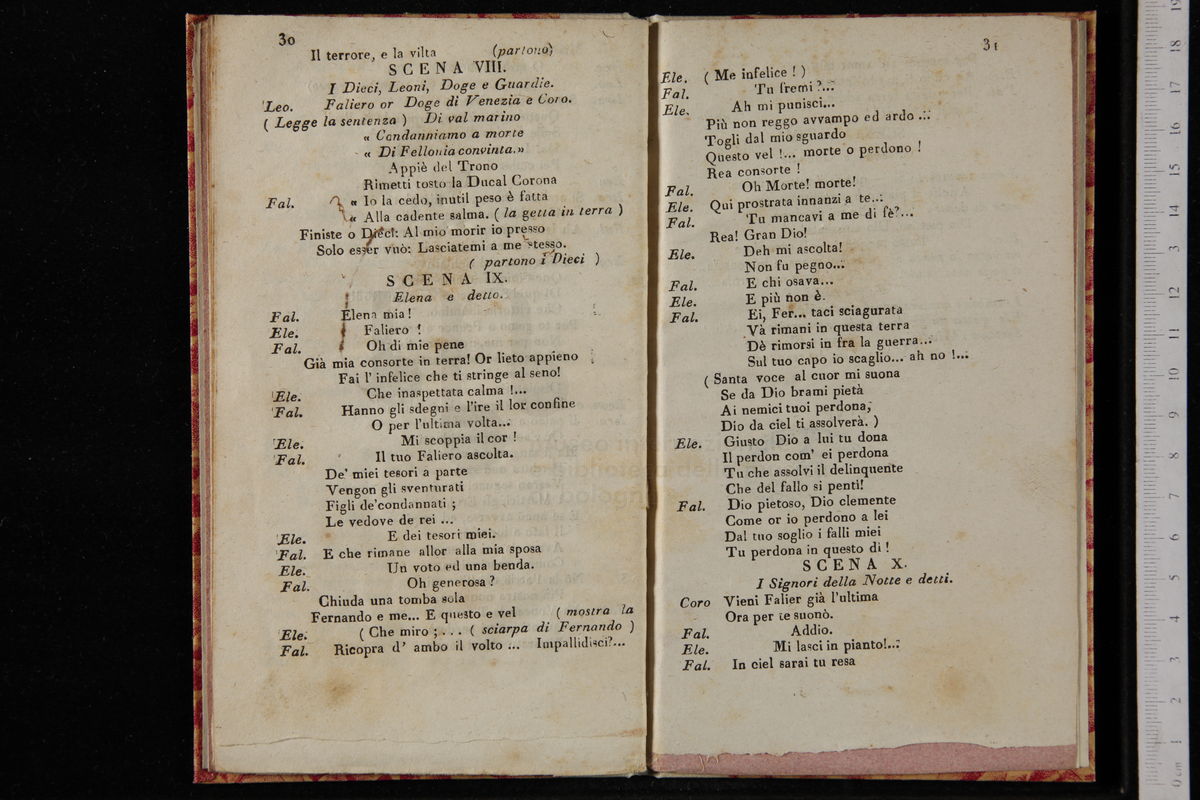 30
Il terrore, e la vilta (partono)
SCENA VIII.
I Dieci, Leoni, Doge e Guardie.
Leo. Faliero or Doge di Venezia e Coro.
( Legge la sentenza ) Di val marino
« Condanniamo a morte
« Di Fellonia convinta.»
Appiè del Trono
Rimetti tosto la Ducal Corona
Fal. « Io la cedo, inutil peso è fatta
« Alla cadente salma. ( la getta in terra )
Finiste o Dieci: Al mio morir io presso
Solo esser vuò: Lasciatemi a me stesso.
( partono i Dieci )
SCENA IX.
Elena e detto.
Fal. Elena mia!
Ele. Faliero !
Fal. Oh di mie pene
Già mia consorte in terra! Or lieto appieno
Fai l' infelice che ti stringe al seno!
Ele. Che inaspettata calma !...
Fal. Hanno gli sdegni e l'ire il lor confine
O per l'ultima volta...
Ele. Mi scoppia il cor !
Fal. Il tuo Faliero ascolta.
De' miei tesori a parte
Vengon gli sventurati
Figli de'condannati ;
Le vedove de rei ...
Ele. E dei tesori miei.
Fal. E che rimane allor alla mia sposa
Ele. Un voto ed una benda.
Fal. Oh generosa ?
Chiuda una tomba sola
Fernando e me... E questo e vel ( mostra la
Ele. ( Che miro ; . . . ( sciarpa di Fernando )
Fal. Ricopra d' ambo il volto ... Impallidisci?...
31
Ele. ( Me infelice ! )
Fal. Tu fremi ?...
Ele. Ah mi punisci...
Più non reggo avvampo ed ardo ...
Togli dal mio sguardo
Questo vel !... morte o perdono !
Rea consorte !
Fal. Oh Morte! morte!
Ele. Qui prostrata innanzi a te...
Fal. Tu mancavi a me di fè?...
Rea! Gran Dio!
Ele. Deh mi ascolta!
Non fu pegno...
Fal. E chi osava...
Ele. E più non è.
Fal. Ei, Fer... taci sciagurata
Và rimani in questa terra
Dè rimorsi in fra la guerra...
Sul tuo capo io scaglio... ah no !...
( Santa voce al cuor mi suona
Se da Dio brami pietà
Ai nemici tuoi perdona,
Dio da ciel ti assolverà. )
Ele. Giusto Dio a lui tu dona
Il perdon com' ei perdona
Tu che assolvi il delinquente
Che del fallo si pentì!
Fal. Dio pietoso, Dio clemente
Come or io perdono a lei
Dal tuo soglio i falli miei
Tu perdona in questo dì !
SCENA X.
I Signori della Notte e detti.
Coro Vieni Falier già l'ultima
Ora per te suonò.
Fal. Addio.
Ele. Mi lasci in pianto!...
Fal. In ciel sarai tu resa